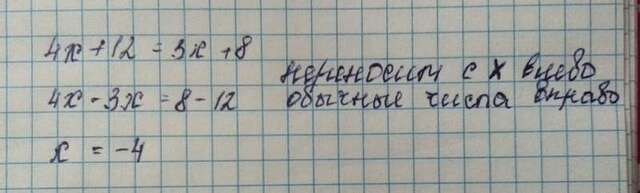 4x + 12 = 3x + 8
переносим с x влево
4x - 3x = 8 - 12
обычные числа вправо
x = -4